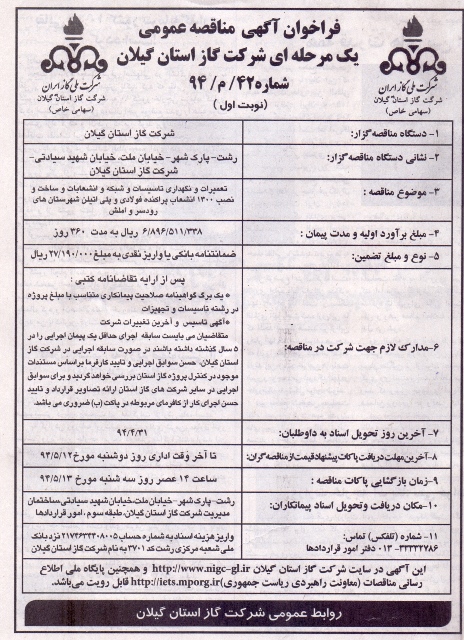 فراخوان آگهی مناقصه عمومی
یک مرحله ای شرکت گاز استان گیلان
شماره ۴۲/ م/ ۹۴
(نوبت اول)
شرکت ملی گاز ایران
شرکت گاز استان گیلان
(سهامی خاص)
شرکت ملی گاز ایران
شرکت گاز استان گیلان
(سهامی خاص)
۱- دستگاه مناقصه گزار:
شرکت گاز استان گیلان
۲- نشانی دستگاه مناقصه گزار:
رشت- پارک شهر- خیابان ملت، خیابان شهید سیادتی-
شرکت گاز استان گیلان
۳- موضوع مناقصه :
تعمیرات و نگهداری تاسیسات و شبکه و انشعابات و ساخت و
نصب ۱۳۰۰ انشعاب پراکنده فولادی و پلی اتیلن شهرستان های
رودسر و املش
۴- مبلغ برآورد اولیه و مدت پیمان :
۶/۸۹۶/۵۱۱/۳۳۸ ریال به مدت ۳۶۰ روز
۵- نوع و مبلغ تضمین:
ضمانتنامه بانکی یا واریز نقدی به مبلغ ۲۷/۱۹۰/۰۰۰ ریال
۶-مدارک لازم جهت شرکت در مناقصه:
پس از ارایه تقاضانامه کتبی :
* یک برگ گواهینامه صلاحیت پیمانکاری متناسب با مبلغ پروژه
در رشته تاسیسات و تجهیزات
*آگهی تاسیس و آخرین تغییرات شرکت
*متقاضیان می بایست سابقه اجرای حداقل یک پیمان اجرایی را در
۵ سال گذشته داشته باشند در صورت سابقه اجرایی در شرکت گاز
استان گیلان، حسن سوابق اجرایی و تایید کارفرما براساس مستندات
موجود در کنترل پروژه گاز استان بررسی خواهد گردید و برای سوابق
اجرایی در سایر شرکت های گاز استان ارائه تصاویر قرارداد و تایید
حسن اجرای کار از کارفرمای مربوطه در پاکت (ب) ضروری می باشد.
۷- آخرین روز تحویل اسناد به داوطلبان:
۹۴/۴/۳۱
۸-آخرین مهلت دریافت پاکات پیشنهاد قیمت از مناقصه گران:
تا آخر وقت اداری روز دوشنبه مورخ ۹۴/۵/۱۲
۹-زمان بازگشایی پاکات مناقصه :
ساعت ۱۴ عصر روز سه شنبه مورخ ۹۴/۵/۱۳
۱۰-مکان دریافت وتحویل اسناد پیمانکاران:
رشت- پارک شهر- خیابان ملت،خیابان شهید سیادتی،ساختمان
مدیریت شرکت گاز استان گیلان، طبقه سوم، امور قراردادها
۱۱- شماره (تلفکس) تماس:
۳۳۳۳۲۷۸۶-۰۱۳ دفتر امور قراردادها
واریز هزینه اسناد به شماره حساب ۲۱۷۴۶۳۳۳۰۸۰۰۵ نزد بانک
ملی شعبه مرکزی رشت کد ۳۷۰۱ به نام شرکت گاز استان گیلان
این آگهی در سایت شرکت گاز استان گیلان http://www.nigc-gl.ir و همچنین پایگاه ملی اطلاع
رسانی مناقصات (معاونت راهبردی ریاست جمهوری)http://iets.mporg.ir قابل رویت می‌باشد.
روابط عمومی شرکت گاز استان گیلان